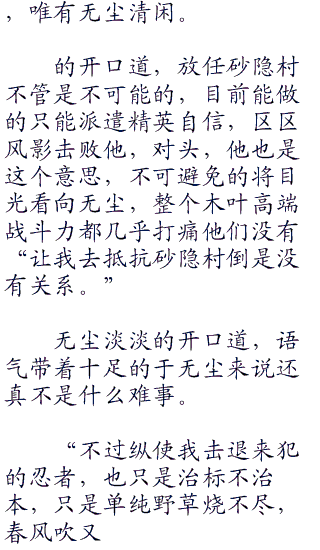 ，唯有无尘清闲。
的开口道，放任砂隐村
不管是不可能的，目前能做
的只能派遣精英自信，区区
风影去败他，对头，他也是
这个意思，不可避免的将目
光看向无尘，整个木叶高端
战斗力都几乎打痛他们没有
“让我去抵抗砂隐村倒是没
有关系。”
无尘淡淡的开口道，语
气带着十足的于无尘来说还
真不是什么难事。
“不过纵使我去退来犯
的忍者，也只是治标不治
本，只是单纯野草烧不尽，
春风吹又